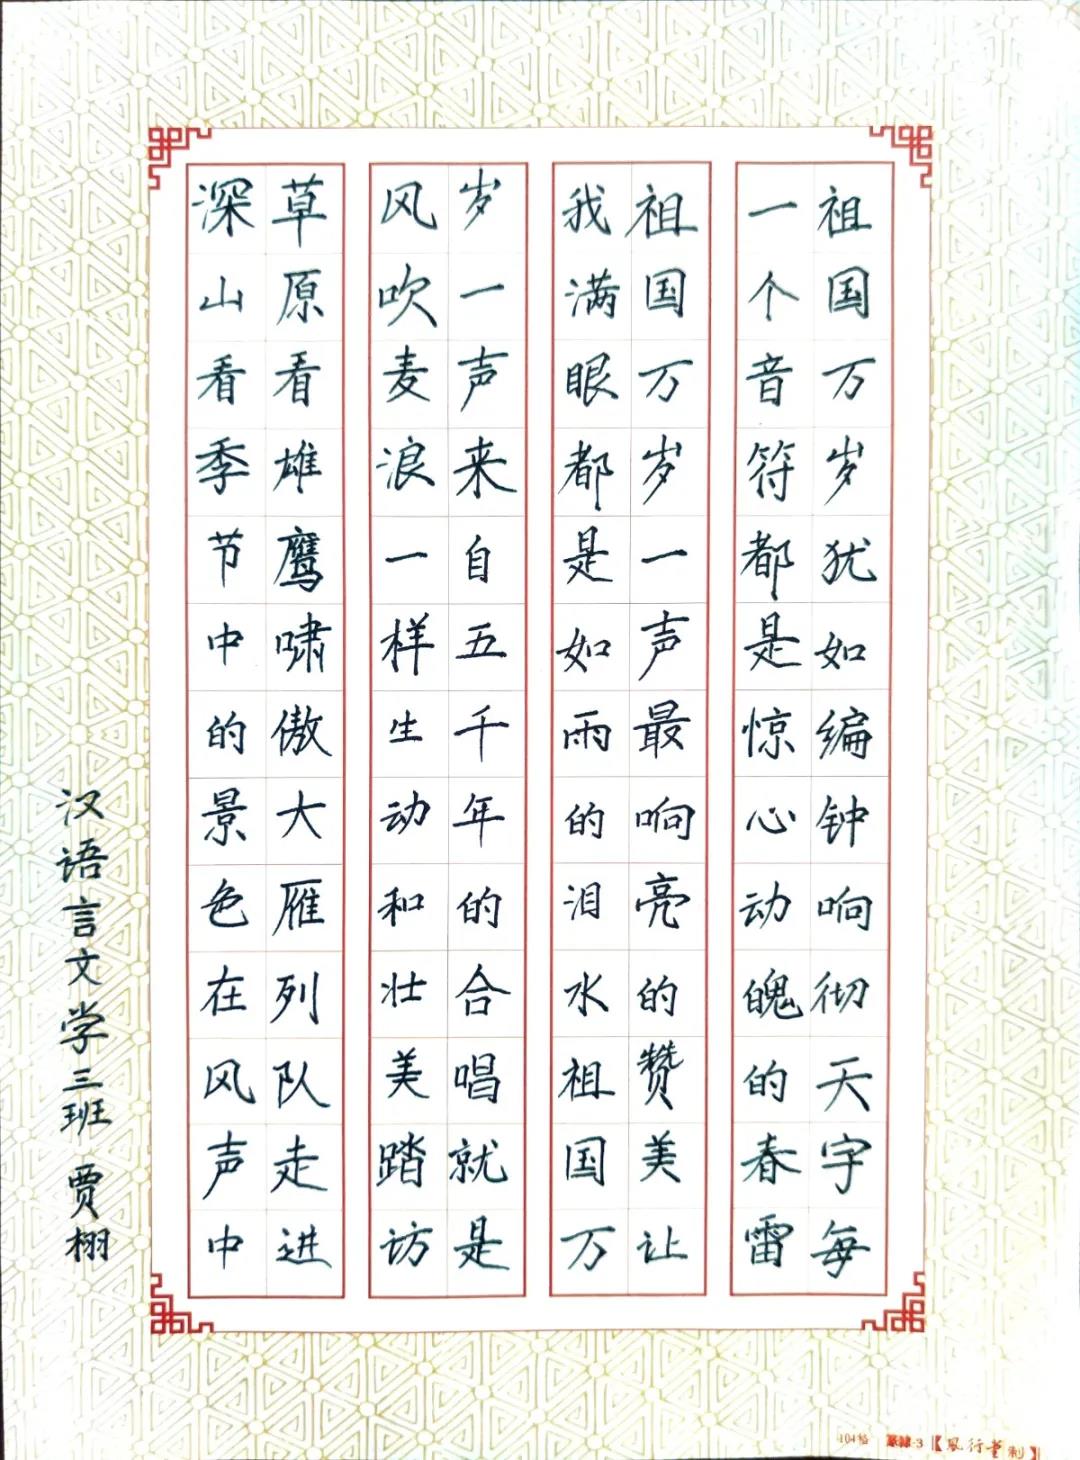 祖国万岁犹如编钟响彻天宇每
一个音符都是惊心动魄的春雷
祖国万岁一声最响亮的赞美让
我满眼都是如雨的泪水祖国万
岁一声来自五千年的合唱就是
风吹麦浪一样生动和壮美踏访
草原看雄鹰啸傲大雁列队走进
深山看季节中的景色在风声中
汉语言文学三班 贾栩
104格 篆隸-3【風行堂制】